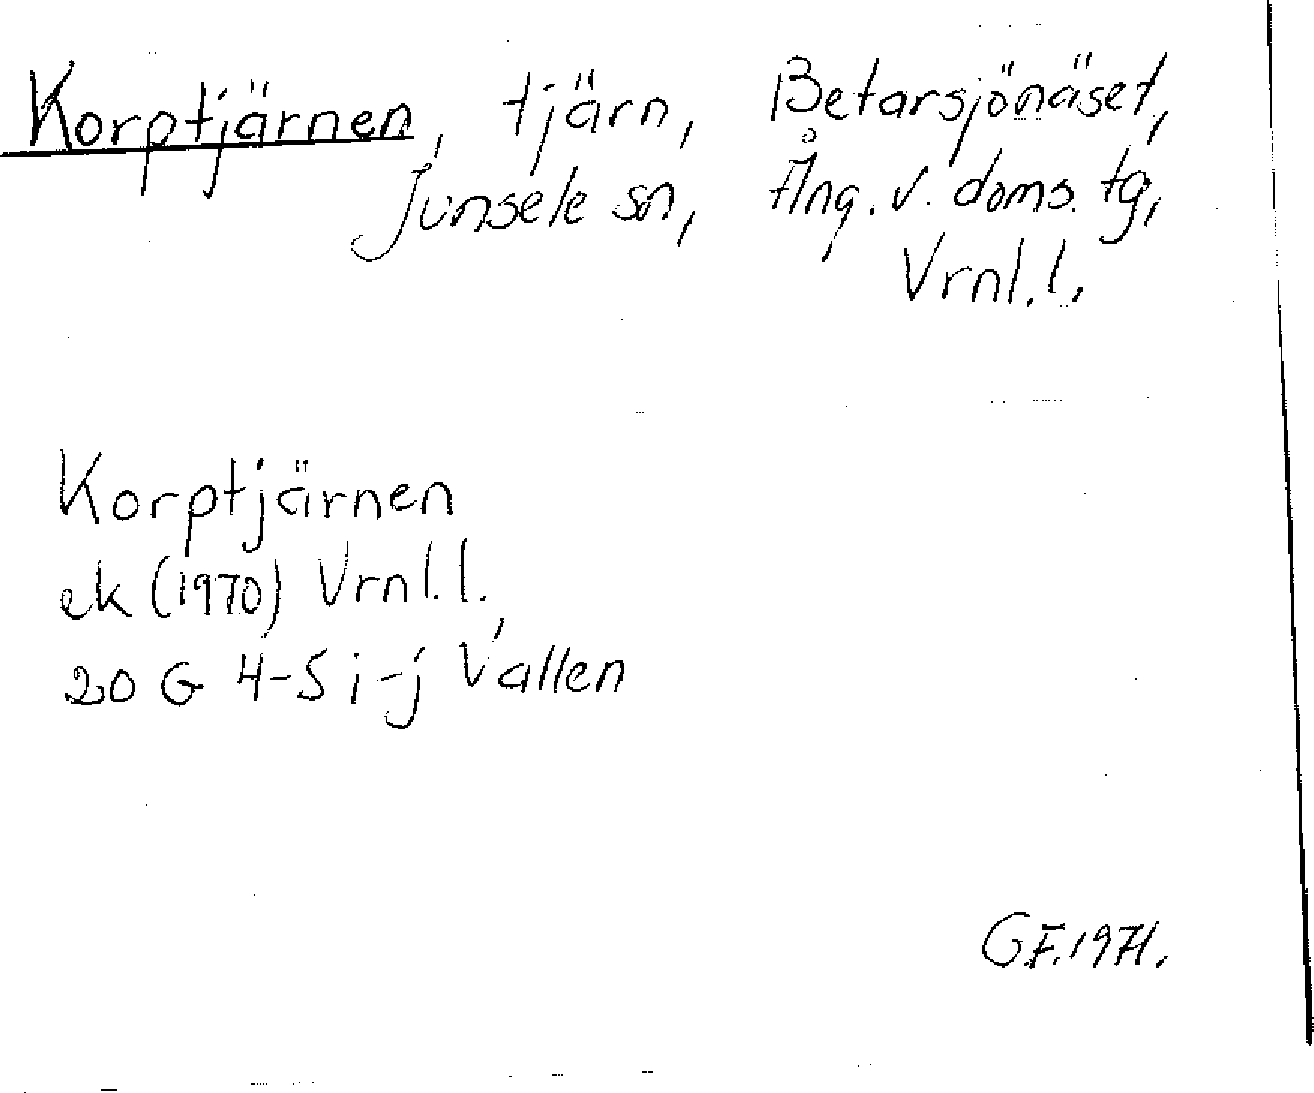 Korptjärnen, tjärn, Betarsjönäset,
Junsele sn, Ång. v. doms. tg,
Vrnl. l.
Korptjärnen
ek (1970) Vrnl. l.,
20 G 4-5 i-j Vallen
G.F. 1971.